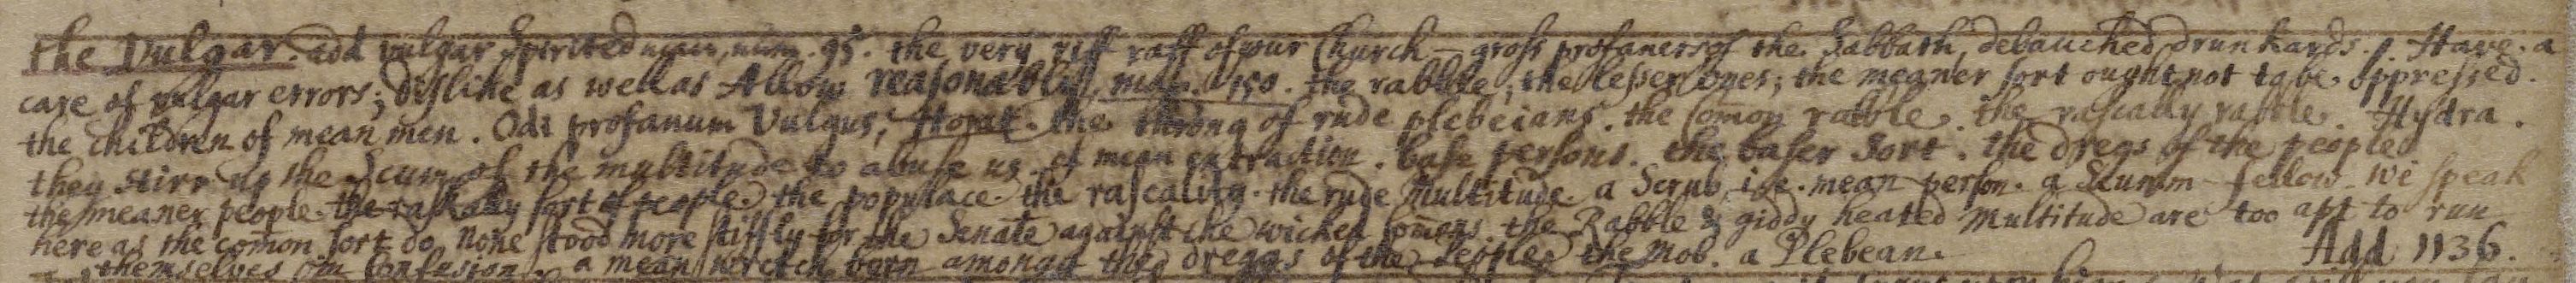 the Vulgar. add vulgar Spirited num. 95. the very riff raff of your Church - gross profaners of the Sabbath, debauched drunkards. Have a
care of vulgar errors; dislike as well as Allow reasonably, num. 150. the rabble, the lesser ones; the meaner sort ought not to be oppressed.
the children of mean men. Odi profanum Vulgus, Horat. the throng of rude plebeians. the com̄on rabble. the rascally rabble. Hydra.
they stirr up the Scum of the multitude to abuse us. of mean extraction. base persons. the baser Sort. the dregs of the people
the meaner people. the raskally sort of people. the populace. the rascality. the rude Multitude. a Scrub, i.e. mean person. a Scumm fellow. We speak
here as the com̄on sort do. None stood more stiffly for the Senate against the wicked com̄ons. the Rabble & giddy heated Multitude are too apt to run
themselves into Confusion. a mean wretch born amongst the dreggs of the People. the Mob. a Plebean. Add 1136.